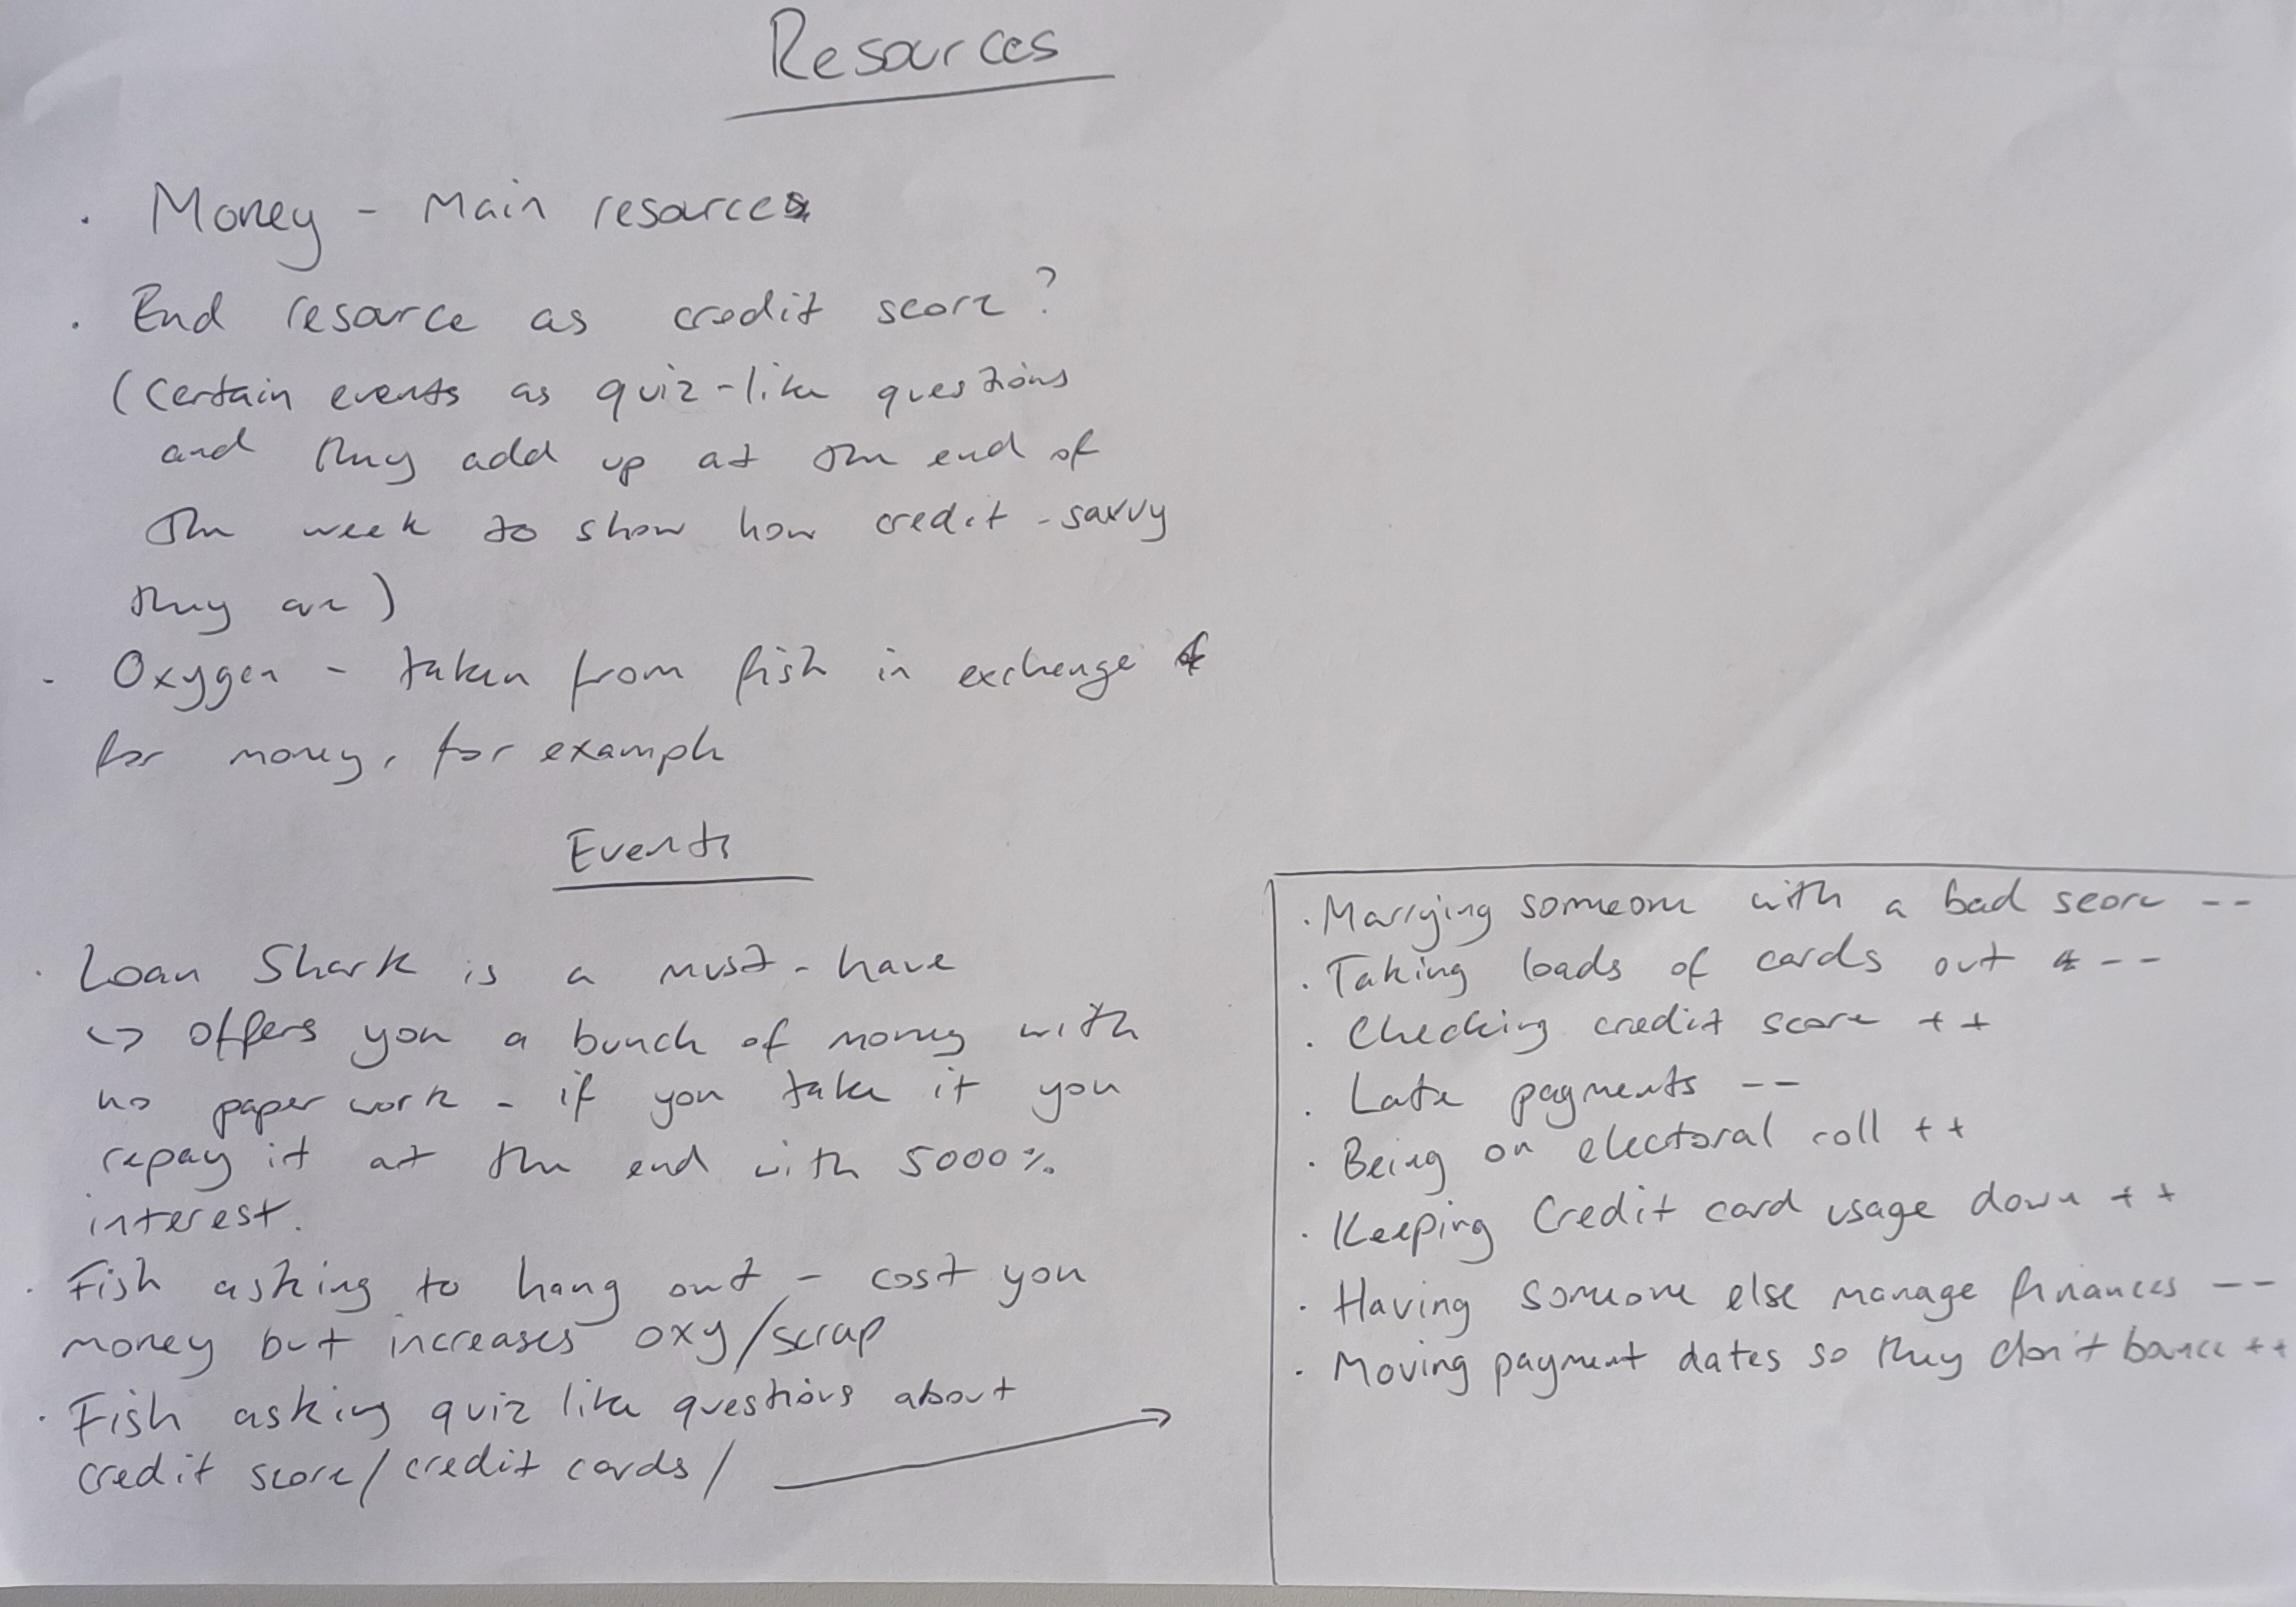 Resources
· Money - Main resource
· End resource as credit score?
(Certain events as quiz-like questions
and they add up at the end of
the week to show how credit-savvy
they are)
- Oxygen - taken from fish in exchange
for money, for example
Events
· Loan Shark is a must-have
↳ offers you a bunch of money with
no paper work - if you take it you
repay it at the end with 5000%
interest.
· Fish asking to hang out - cost you
money but increases oxy/scrap
· Fish asking quiz like questions about
credit score/credit cards/ →
· Marrying someone with a bad score --
· Taking loads of cards out --
· Checking credit score ++
· Late payments --
· Being on electoral roll ++
· Keeping Credit card usage down ++
· Having someone else manage finances --
· Moving payment dates so they don't bounce ++